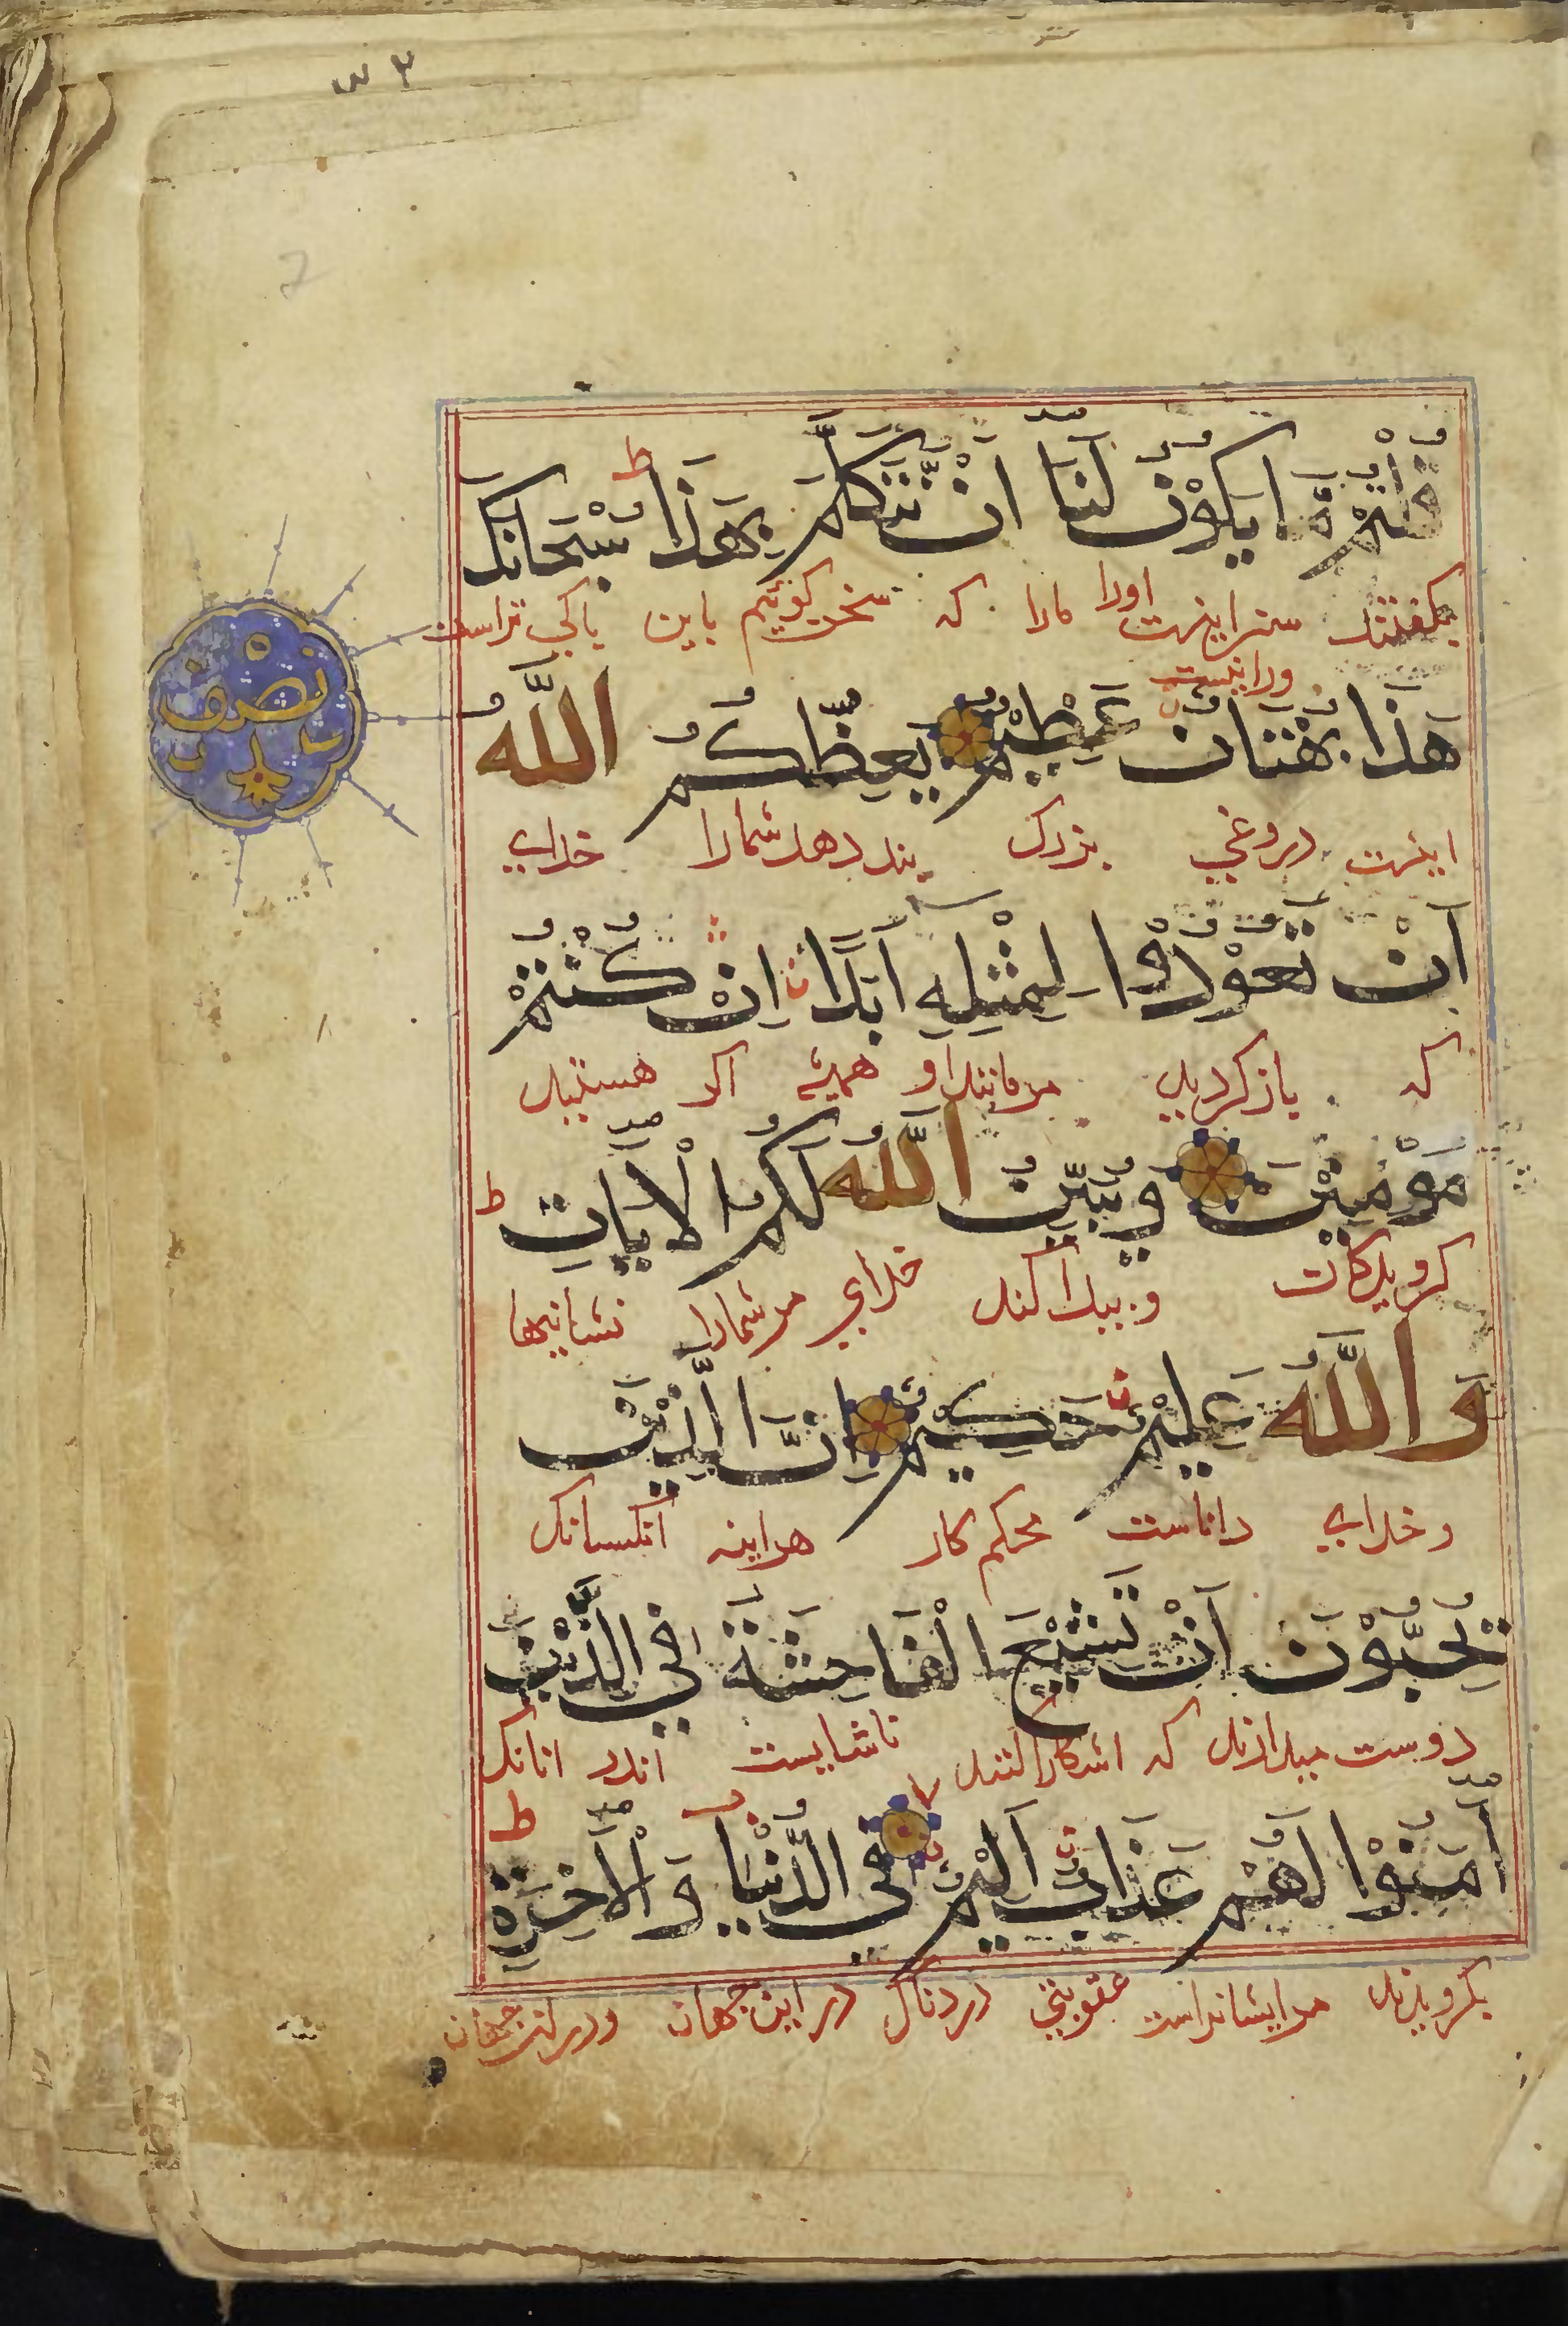 قُلْتُمْ مَّا يَكُوْنُ لَنَا اَنْ نَّتَكَلَّمَ بِهَذَا ط سُبْحَانَكَ
بكفتند سزا نيست اورا مارا كه سخن كوئيم باين پاكي تراست
ورا نيست
نصف
هَذَا بُهْتَانٌ عَظِيْمٌ يَعِظُكُمُ اللّٰهُ
اينست دروغي بزرك پند دهد شمارا خداي
اَنْ تَعُوْدُوْا لِمِثْلِهِ اَبَدًا اِنْ كُنْتُمْ
كه باز كرديد مر مانند او هميشه اكر هستيد
مُؤْمِنِيْنَ وَيُبَيِّنُ اللّٰهُ لَكُمُ الْاٰيَاتِ ط
كرويدكان و پيدا كند خداي مر شمارا نشانيها
وَاللّٰهُ عَلِيْمٌ حَكِيْمٌ اِنَّ الَّذِيْنَ
و خداي داناست محكم كار هراينه آنكسانك
يُحِبُّوْنَ اَنْ تَشِيْعَ الْفَاحِشَةُ فِي الَّذِيْنَ
دوست ميدارند كه اشكارا كنند ناشايست اندر انانك
اٰمَنُوْا لَهُمْ عَذَابٌ اَلِيْمٌ فِي الدُّنْيَا وَالْاٰخِرَةِ ط
بكرويدند مرايشانراست عقوبتي دردناك در اين جهان ودر ان جهان